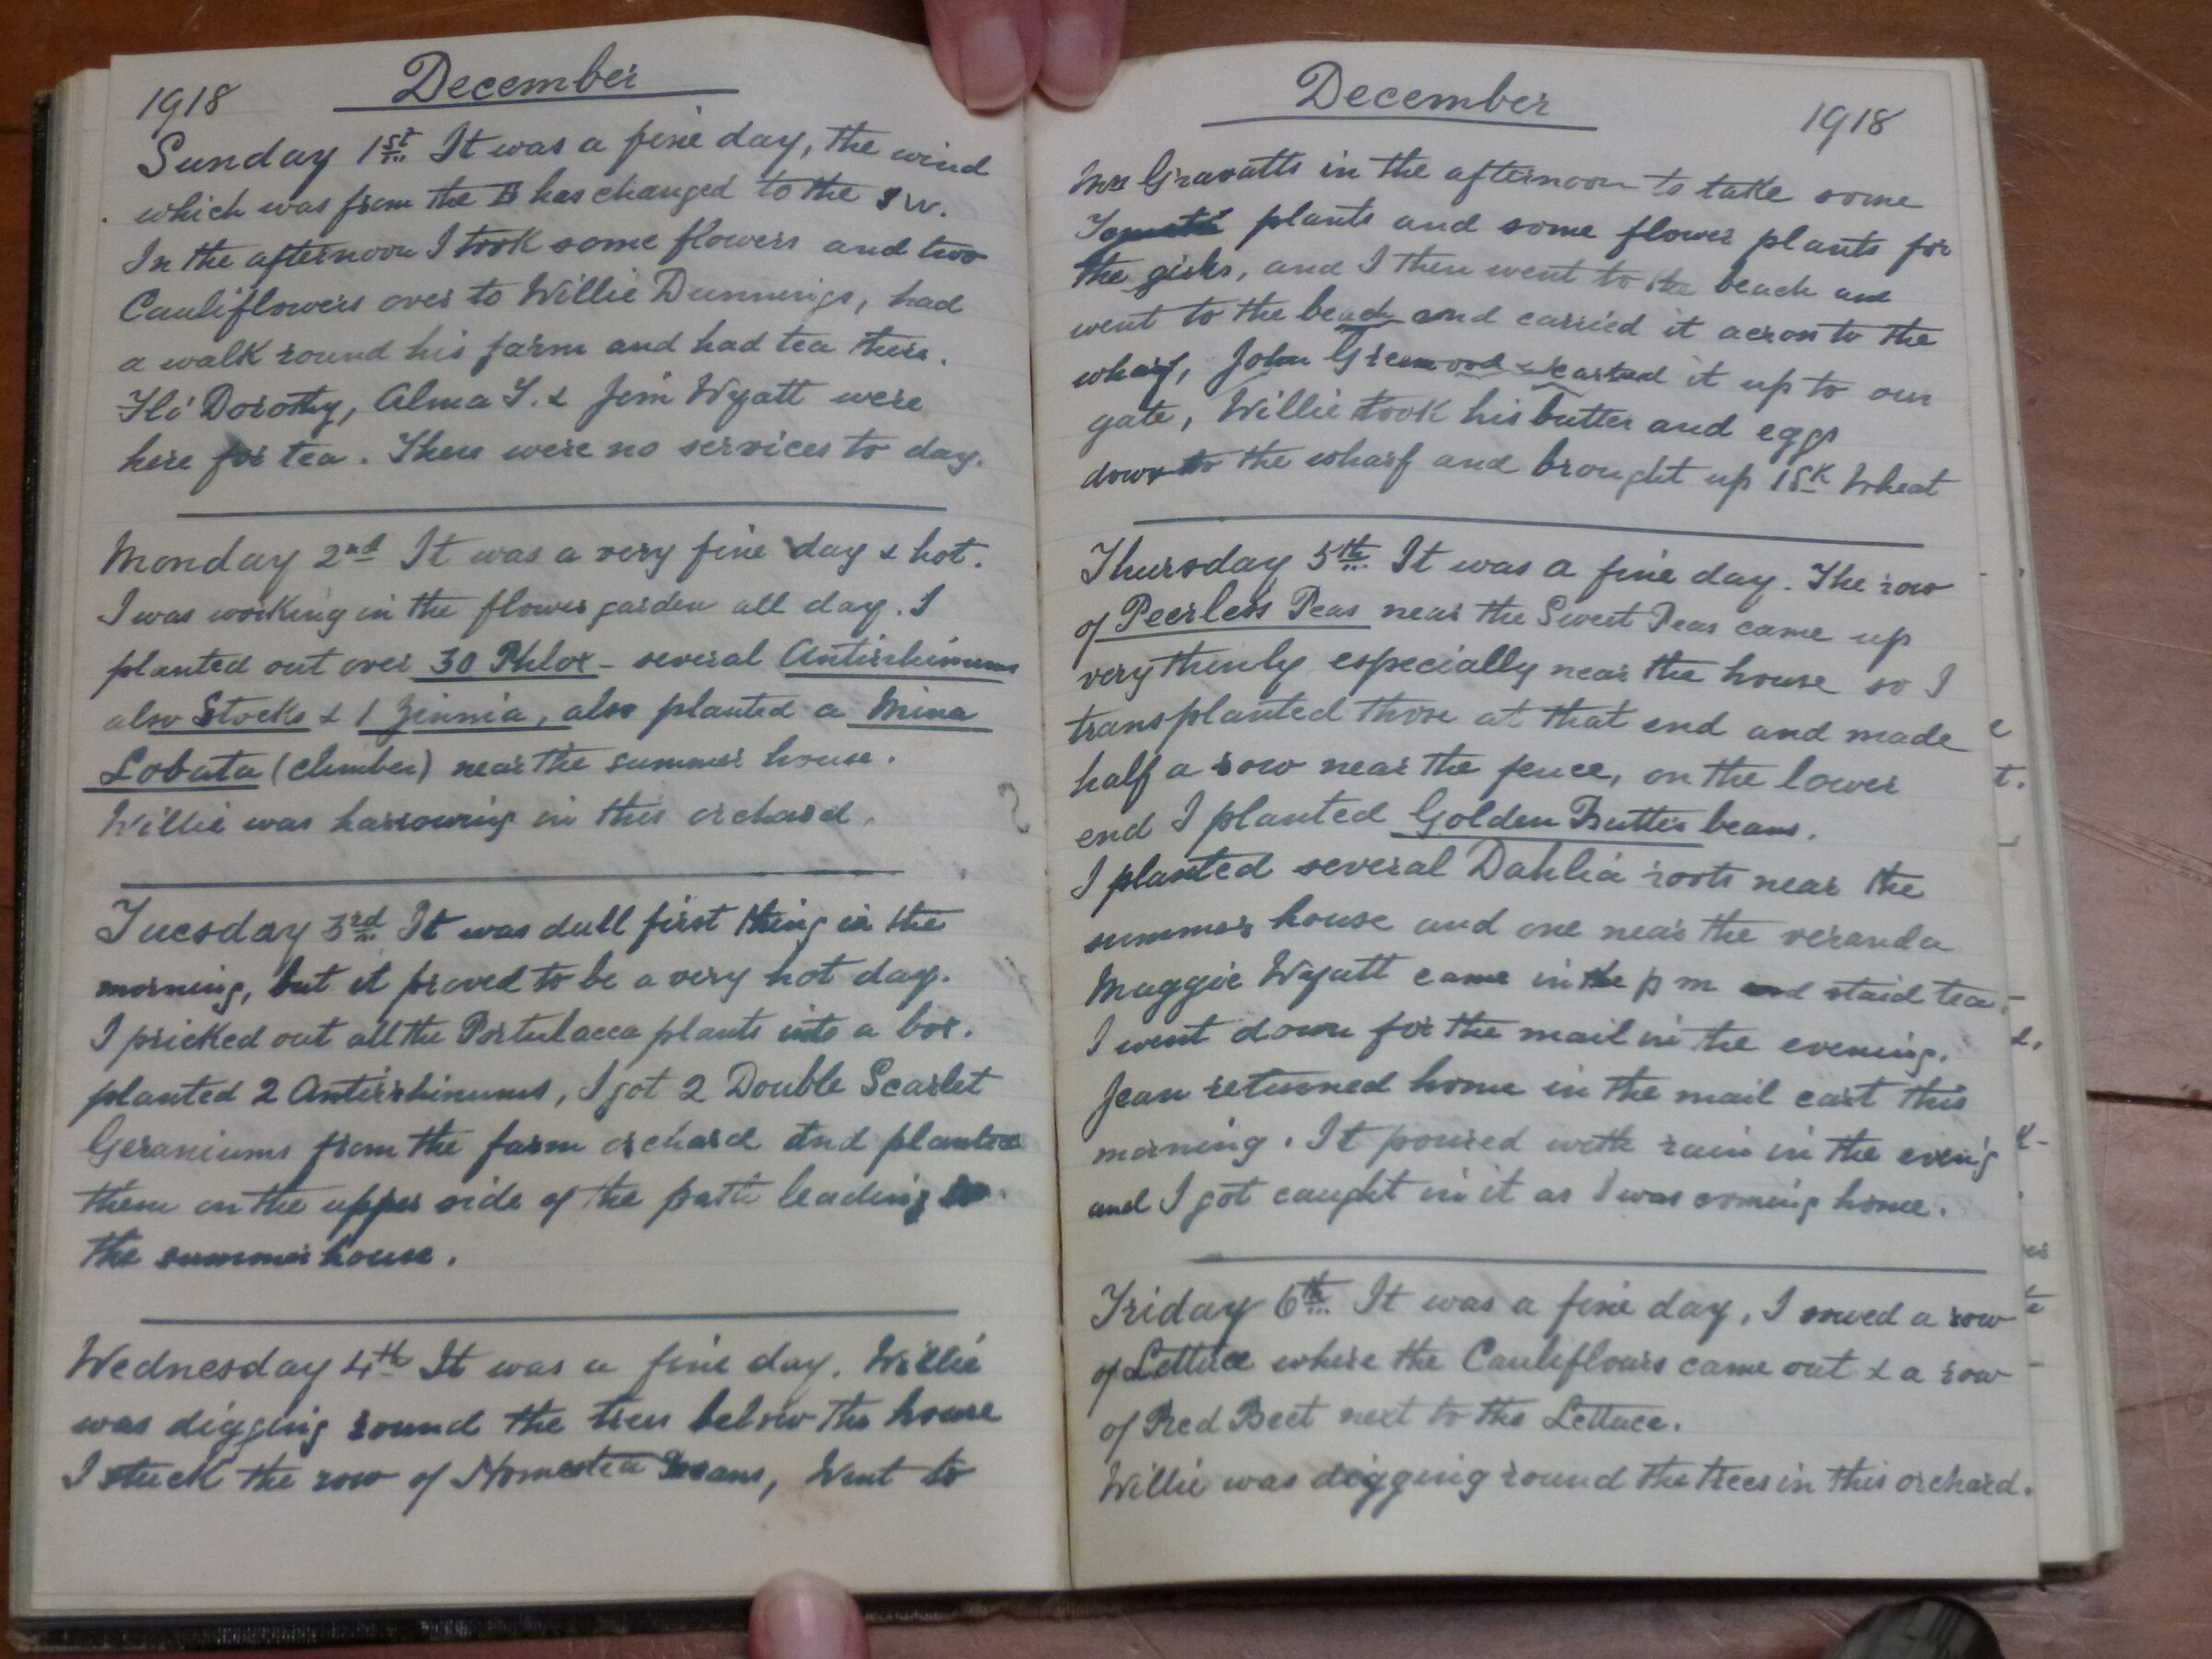 1918
December
Sunday 1st It was a fine day, the wind
which was from the E has changed to the SW.
In the afternoon I took some flowers and two
Cauliflowers over to Willie Dunnings, had
a walk round his farm and had tea there.
Flo Dorothy, Alma Y. & Jim Wyatt were
here for tea. There were no services to day.
Monday 2nd It was a very fine day & hot.
I was working in the flower garden all day. I
planted out over 30 Phlox - several Antirrhinums
also Stocks & 1 Zinnia, also planted a Mina
Lobata (climber) near the summer house.
Willie was harrowing in this orchard.
Tuesday 3rd It was dull first thing in the
morning, but it proved to be a very hot day.
I pricked out all the Portulacca plants into a box.
planted 2 Antirrhinums, I got 2 Double Scarlet
Geraniums from the farm orchard and planted
them on the upper side of the path leading to
the summer house.
Wednesday 4th It was a fine day. Willie
was digging round the trees below the house
I stuck the row of Beans, Went to
December
1918
Mrs Gravatts in the afternoon to take some
Tomato plants and some flower plants for
the girls, and I then went to the beach and
went to the beach and carried it across to the
wharf, John Greenwood carted it up to our
gate, Willie took his butter and eggs
down to the wharf and brought up 1 Sk Wheat
Thursday 5th It was a fine day. The row
of Peerless Peas near the Sweet Peas came up
very thinly especially near the house so I
transplanted those at that end and made
half a row near the fence, on the lower
end I planted Golden Butter beans.
I planted several Dahlia roots near the
summer house and one near the veranda
Maggie Wyatt came in the p m and staid tea.
I went down for the mail in the evening.
Jean returned home in the mail cart this
morning. It poured with rain in the evenig
and I got caught in it as I was coming home.
Friday 6th It was a fine day, I sowed a row
of Lettuce where the Cauliflours came out & a row
of Red Beet next to the Lettuce.
Willie was digging round the trees in this orchard.